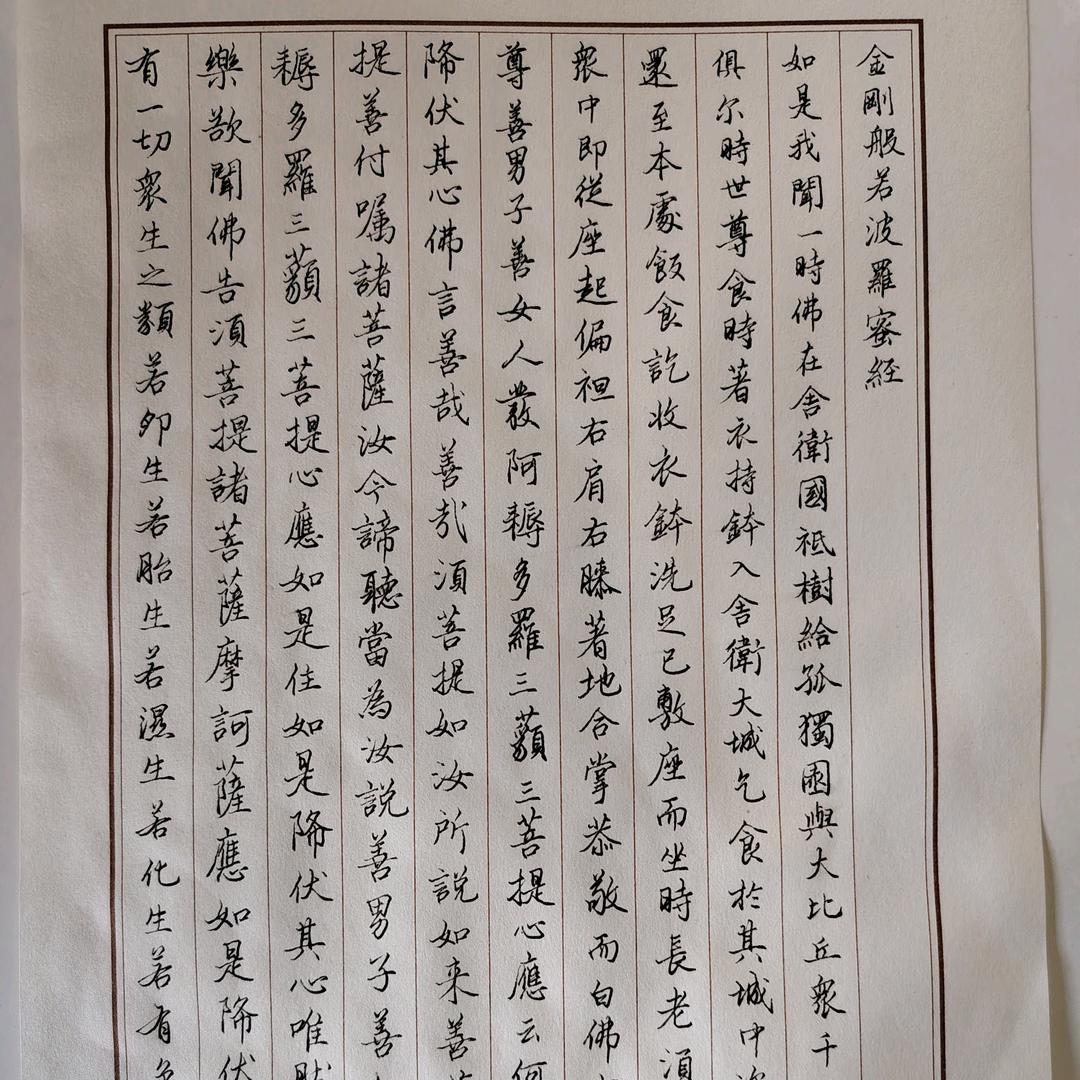 金剛般若波羅蜜経
如是我聞一時佛在舎衛國祗樹給孤獨園與大比丘衆千
俱尔時世尊食時著衣持鉢入舎衛大城乞食於其城中
還至本處飯食訖收衣鉢洗足已敷座而坐時長老湏
衆中即從座起偏袒右肩右膝著地合掌恭敬而白佛
尊善男子善女人發阿耨多羅三藐三菩提心應云何
降伏其心佛言善哉善哉湏菩提如汝所説如来善
提善付嘱諸菩薩汝今諦聽當為汝説善男子善
耨多羅三藐三菩提心應如是住如是降伏其心唯
樂欲聞佛告湏菩提諸菩薩摩訶薩應如是降伏
有一切衆生之類若卵生若胎生若濕生若化生若有